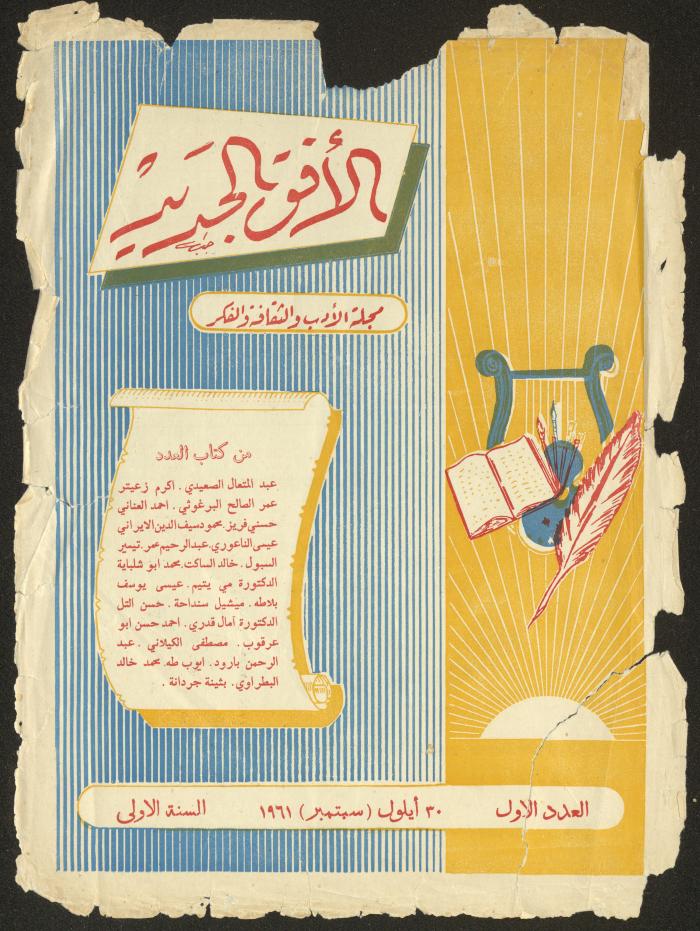 الأفق الجديد
مجلة الأدب والثقافة والفكر
من كتاب العدد
عبد المتعال الصعيدي . اكرم زعيتر
عمر الصالح البرغوثي . احمد العناني
حسني فريز . محمود سيف الدين الايراني
عيسى الناعوري . عبد الرحيم عمر . تيسير
السبول . خالد الساكت . محمد ابو شلباية
الدكتورة مي يتيم . عيسى يوسف
بلاطه . ميشيل سنداحة . حسن التل
الدكتورة آمال قدري . احمد حسن ابو
عرقوب . مصطفى الكيلاني . عبد
الرحمن بارود . ايوب طه . محمد خالد
البطراوي . بثينة جردانة .
العدد الاول ٣٠ أيلول (سبتمبر) ١٩٦١ السنة الاولى